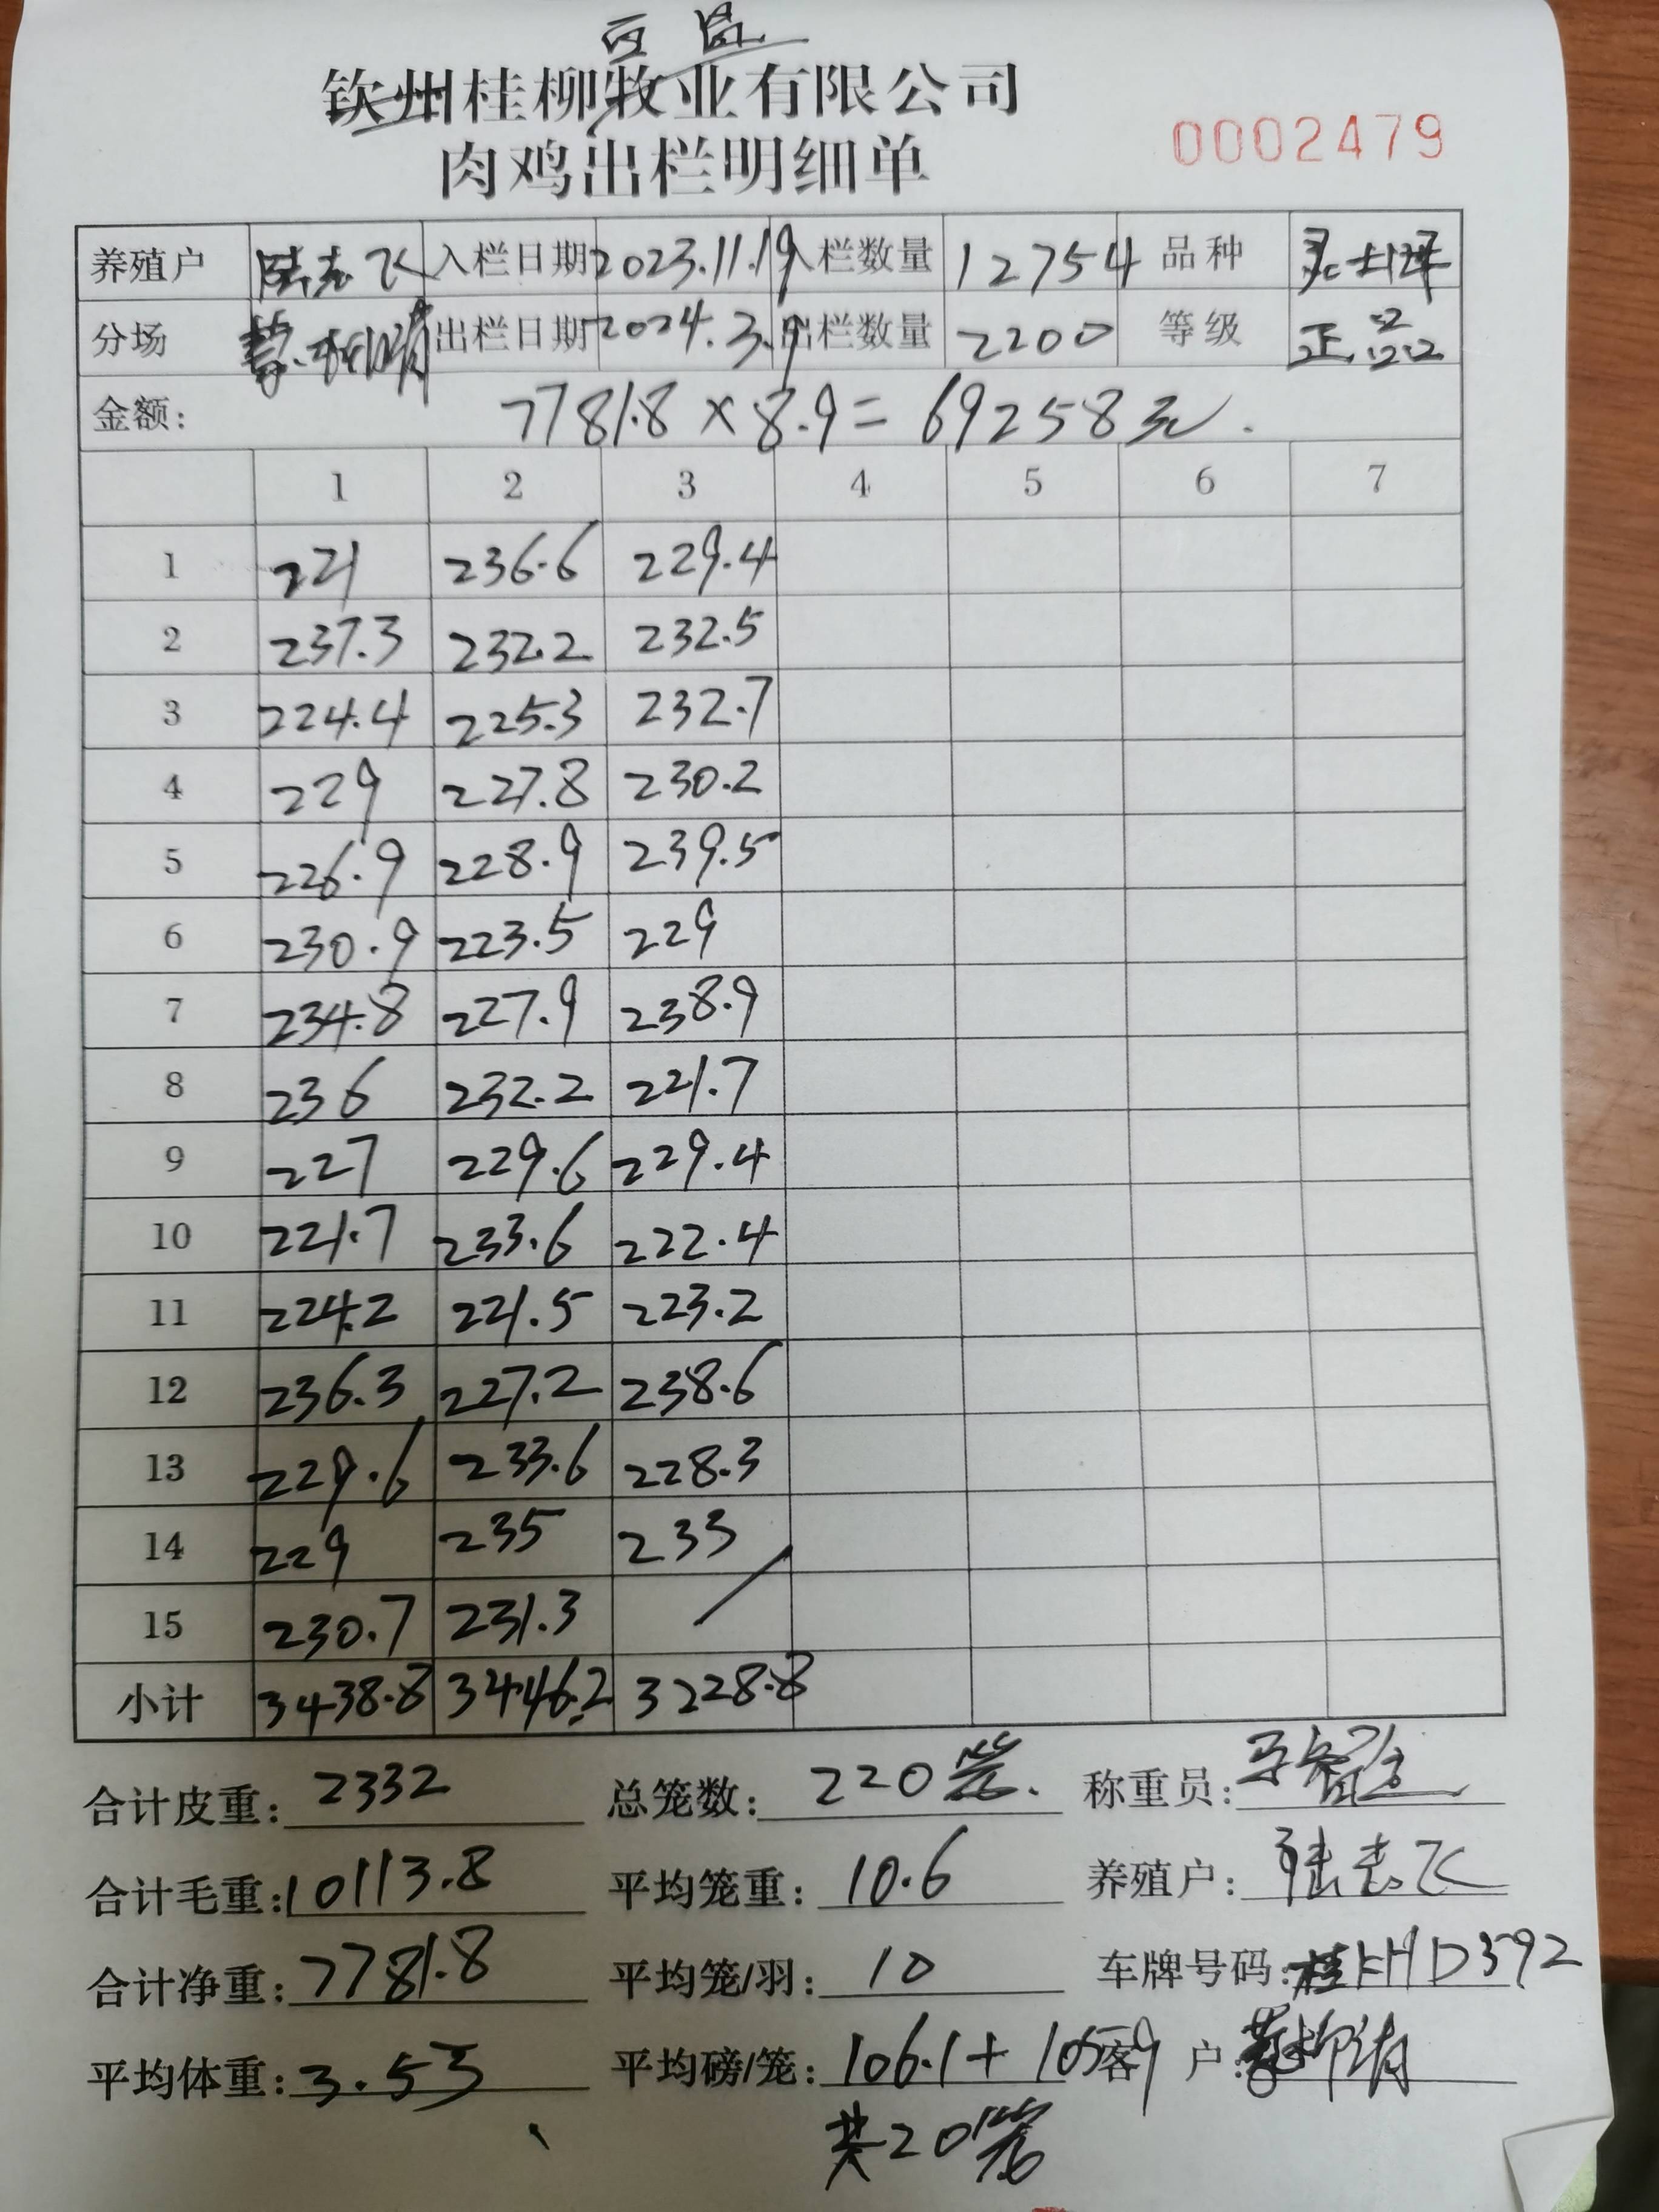 百色
钦州桂柳牧业有限公司
肉鸡出栏明细单
0002479
养殖户 陆志飞 入栏日期 2023.11.19 入栏数量 12754 品种
分场 出栏日期 2024.3.9 出栏数量 2200 等级 正品
金额: 7781.8×8.9=69258元.
1 2 3 4 5 6 7
1 221 236.6 229.4
2 237.3 232.2 232.5
3 224.4 225.3 232.7
4 229 227.8 230.2
5 226.9 228.9 239.5
6 230.9 223.5 229
7 234.8 227.9 238.9
8 236 232.2 221.7
9 227 229.6 229.4
10 221.7 233.6 222.4
11 224.2 221.5 223.2
12 236.3 227.2 238.6
13 229.6 233.6 228.3
14 229 235 233
15 230.7 231.3 /
小计 3438.8 3446.2 3228.8
合计皮重: 2332 总笼数: 220笼. 称重员:
合计毛重: 10113.8 平均笼重: 10.6 养殖户: 陆志飞
合计净重: 7781.8 平均笼/羽: 10 车牌号码: 桂KHD392
平均体重: 3.53 平均磅/笼: 106.1+105.9 客户:
共20笼